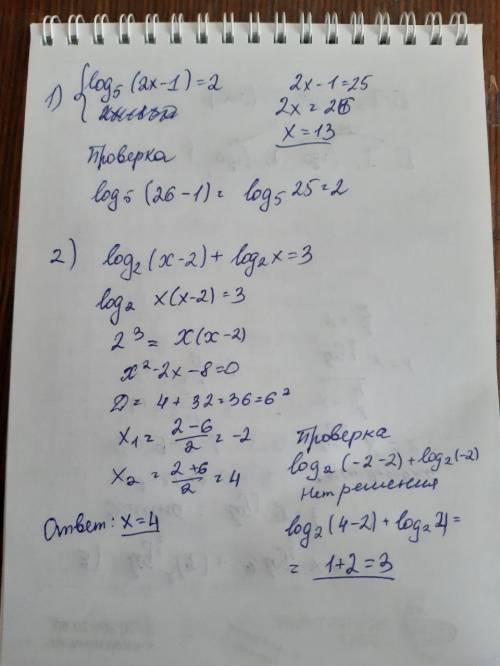 1) { log₅ (2x-1) = 2
2x-1=25
2x = 26
x = 13
Проверка
log₅ (26-1) = log₅ 25 = 2
2) log₂ (x-2) + log₂ x = 3
log₂ x(x-2) = 3
2³ = x(x-2)
x²-2x-8=0
D = 4 + 32 = 36 = 6²
x₁ = (2-6)/2 = -2
x₂ = (2+6)/2 = 4
Ответ: x=4
Проверка
log₂ (-2-2) + log₂(-2)
Нет решения
log₂ (4-2) + log₂ 4 =
= 1+2=3